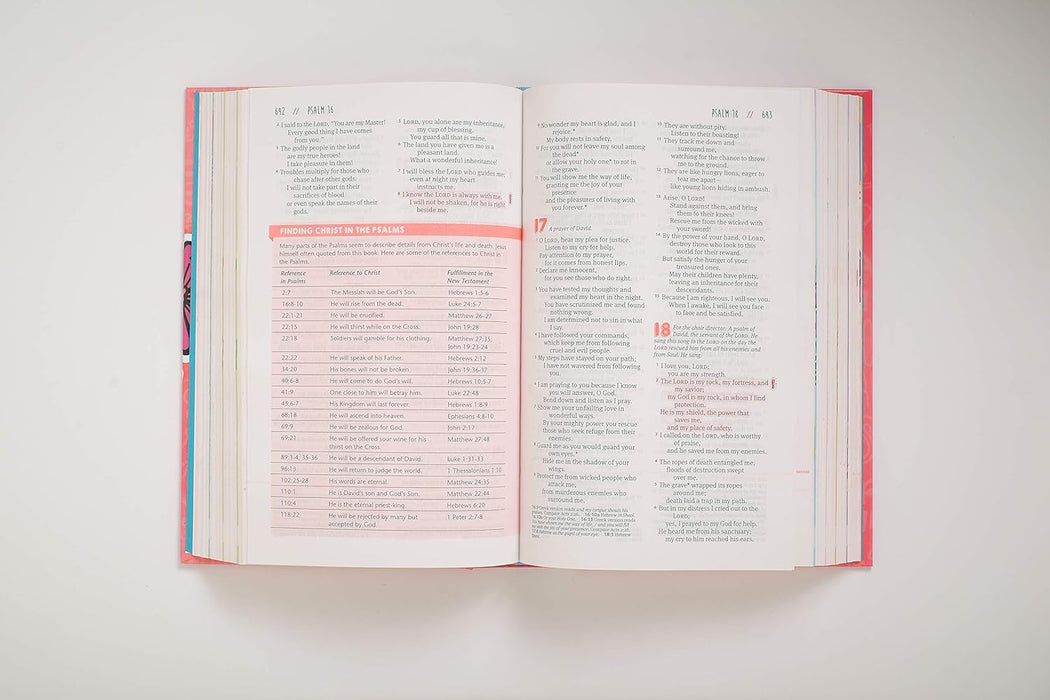 692 // PSALM 16
2 I said to the LORD, "You are my Master!
Every good thing I have comes
from you."
3 The godly people in the land
are my true heroes!
I take pleasure in them!
4 Troubles multiply for those who
chase after other gods.
I will not take part in their
sacrifices of blood
or even speak the names of their
gods.
5 LORD, you alone are my inheritance,
my cup of blessing.
You guard all that is mine.
6 The land you have given me is a
pleasant land.
What a wonderful inheritance!
7 I will bless the LORD who guides me;
even at night my heart
instructs me.
8 I know the LORD is always with me.
I will not be shaken, for he is right
beside me.
FINDING CHRIST IN THE PSALMS
Many parts of the Psalms seem to describe details from Christ's life and death. Jesus
himself often quoted from this book. Here are some of the references to Christ in
the Psalms.
Reference in Psalms Reference to Christ Fulfillment in the New Testament
2:7 The Messiah will be God's Son. Hebrews 1:5-6
16:8-10 He will rise from the dead. Luke 24:5-7
22:1-21 He will be crucified. Matthew 26–27
22:15 He will thirst while on the Cross. John 19:28
22:18 Soldiers will gamble for his clothing. Matthew 27:35; John 19:23-24
22:22 He will speak of his Father. Hebrews 2:12
34:20 His bones will not be broken. John 19:36-37
40:6-8 He will come to do God's will. Hebrews 10:5-7
41:9 One close to him will betray him. Luke 22:48
45:6-7 His Kingdom will last forever. Hebrews 1:8-9
68:18 He will ascend into heaven. Ephesians 4:8-10
69:9 He will be zealous for God. John 2:17
69:21 He will be offered sour wine for his thirst on the Cross. Matthew 27:48
89:3-4, 35-36 He will be a descendant of David. Luke 1:31-33
96:13 He will return to judge the world. 1 Thessalonians 1:10
102:25-28 His words are eternal. Matthew 24:35
110:1 He is David's son and God's Son. Matthew 22:44
110:4 He is the eternal priest-king. Hebrews 6:20
118:22 He will be rejected by many but accepted by God. 1 Peter 2:7-8
PSALM 18 // 693
9 No wonder my heart is glad, and I
rejoice.*
My body rests in safety.
10 For you will not leave my soul among
the dead*
or allow your holy one* to rot in
the grave.
11 You will show me the way of life,
granting me the joy of your
presence
and the pleasures of living with
you forever.*
17 A prayer of David.
1 O LORD, hear my plea for justice.
Listen to my cry for help.
Pay attention to my prayer,
for it comes from honest lips.
2 Declare me innocent,
for you see those who do right.
3 You have tested my thoughts and
examined my heart in the night.
You have scrutinized me and found
nothing wrong.
I am determined not to sin in what
I say.
4 I have followed your commands,
which keep me from following
cruel and evil people.
5 My steps have stayed on your path;
I have not wavered from following
you.
6 I am praying to you because I know
you will answer, O God.
Bend down and listen as I pray.
7 Show me your unfailing love in
wonderful ways.
By your mighty power you rescue
those who seek refuge from their
enemies.
8 Guard me as you would guard your
own eyes.*
Hide me in the shadow of your
wings.
9 Protect me from wicked people who
attack me,
from murderous enemies who
surround me.
10 They are without pity.
Listen to their boasting!
11 They track me down and
surround me,
watching for the chance to throw
me to the ground.
12 They are like hungry lions, eager to
tear me apart—
like young lions hiding in ambush.
13 Arise, O LORD!
Stand against them, and bring
them to their knees!
Rescue me from the wicked with
your sword!
14 By the power of your hand, O LORD,
destroy those who look to this
world for their reward.
But satisfy the hunger of your
treasured ones.
May their children have plenty,
leaving an inheritance for their
descendants.
15 Because I am righteous, I will see you.
When I awake, I will see you face
to face and be satisfied.
18 For the choir director: A psalm of
David, the servant of the LORD. He
sang this song to the LORD on the day the
LORD rescued him from all his enemies and
from Saul. He sang:
1 I love you, LORD;
you are my strength.
2 The LORD is my rock, my fortress, and
my savior;
my God is my rock, in whom I find
protection.
He is my shield, the power that
saves me,
and my place of safety.
3 I called on the LORD, who is worthy
of praise,
and he saved me from my enemies.
4 The ropes of death entangled me;
floods of destruction swept
over me.
5 The grave* wrapped its ropes
around me;
death laid a trap in my path.
6 But in my distress I cried out to the
LORD;
yes, I prayed to my God for help.
He heard me from his sanctuary;
my cry to him reached his ears.